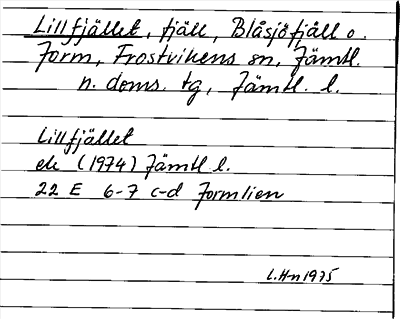 Lillfjället, fjäll, Blåsjöfjäll o.
Jorm, Frostvikens sn, Jämtl.
n. doms. tg, Jämtl. l.
Lillfjället
ek (1974) Jämtl l.
22 E 6-7 c-d Jormlien
L.Hn 1975